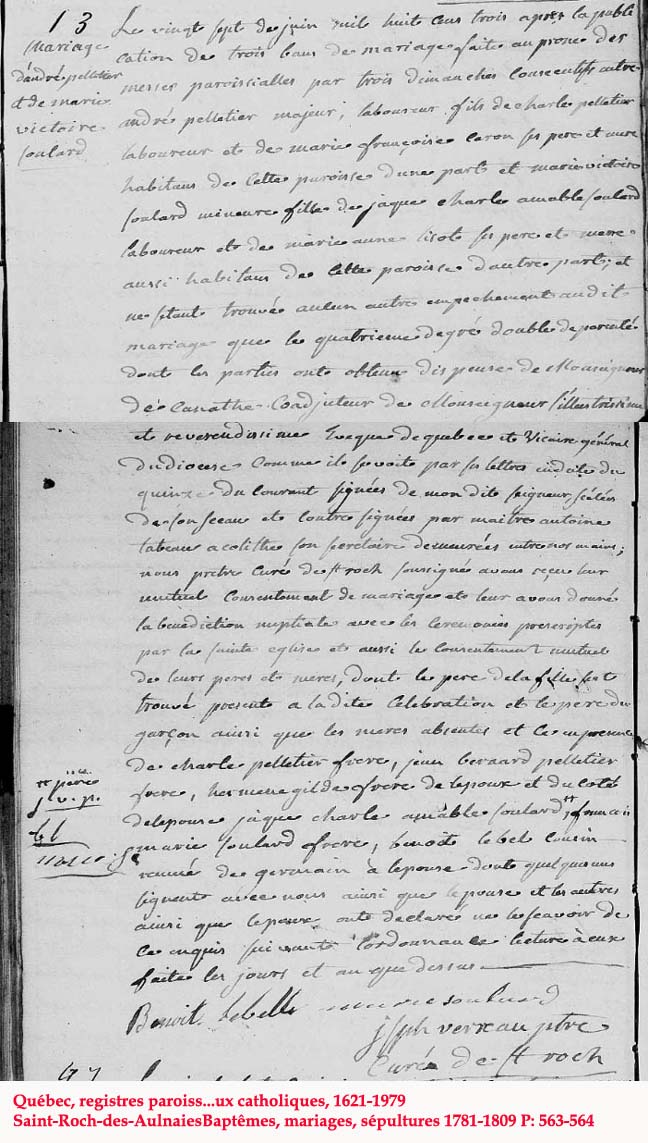 13
Mariage
d'andré pelletier
et de marie
victoire
soulard
Le vingt sept de juin mil huit cens trois après la publi
cation de trois bans de mariage faite au prone des
messes paroissialles par trois dimanches consecutifs entre
andré pelletier majeur, laboureur fils de charle pelletier
laboureur et de marie françoise caron ses pere et mere
habitans de cette paroisse d'une part et marie victoire
soulard mineure fille de jaque charle amable soulard
laboureur et de marie anne lisot ses pere et mere
aussi habitans de cette paroisse d'autre part; et
ne s'etant trouvée aucun autre empechement au dit
mariage que le quatrieme degré double de parenté
dont les parties ont obtenu dispense de Monseigneur
de Canathe Coadjuteur de Monseigneur l'illustrissime
et reverendissime Eveque de quebec et Vicaire général
du diocese comme il se voit par ses lettres en date du
quinze du courant signées de mon dit seigneur scélées
de son sceau et contre signées par maitre antoine
tabeau acolithe son secretaire demeurées entre nos mains;
nous pretre Curé de st roch soussigné avons reçu leur
mutuel consentement de mariage et leur avons donné
la bénédiction nuptiale avec les ceremonies prescriptes
par la sainte eglise et aussi le consentement mutuel
de leurs peres et meres, dont le pere de la fille s'est
trouvé present a la dite Celebration et le pere du
garçon ainsi que les meres absentes et Ce en presence
de charle pelletier frere, jean bernard pelletier
frere, hermenegilde frere de lepoux et du coté
de lepouse jaque charle amable soulard ++, francois
marie soulard frere, benoit lebel cousin
remué de germain à lepouse dont quelques uns
signent avec nous ainsi que lepouse et les autres
ainsi que lepoux ont declaré ne le sçavoir de
ce enquis suivant l'ordonnance lecture à eux
faite les jours et an que dessus
++ père
j. v. p.
Benoit lebelle marie soulard
jseph verreau ptre
Curé de st roch
Québec, registres paroiss...ux catholiques, 1621-1979
Saint-Roch-des-AulnaiesBaptêmes, mariages, sépultures 1781-1809 P: 563-564